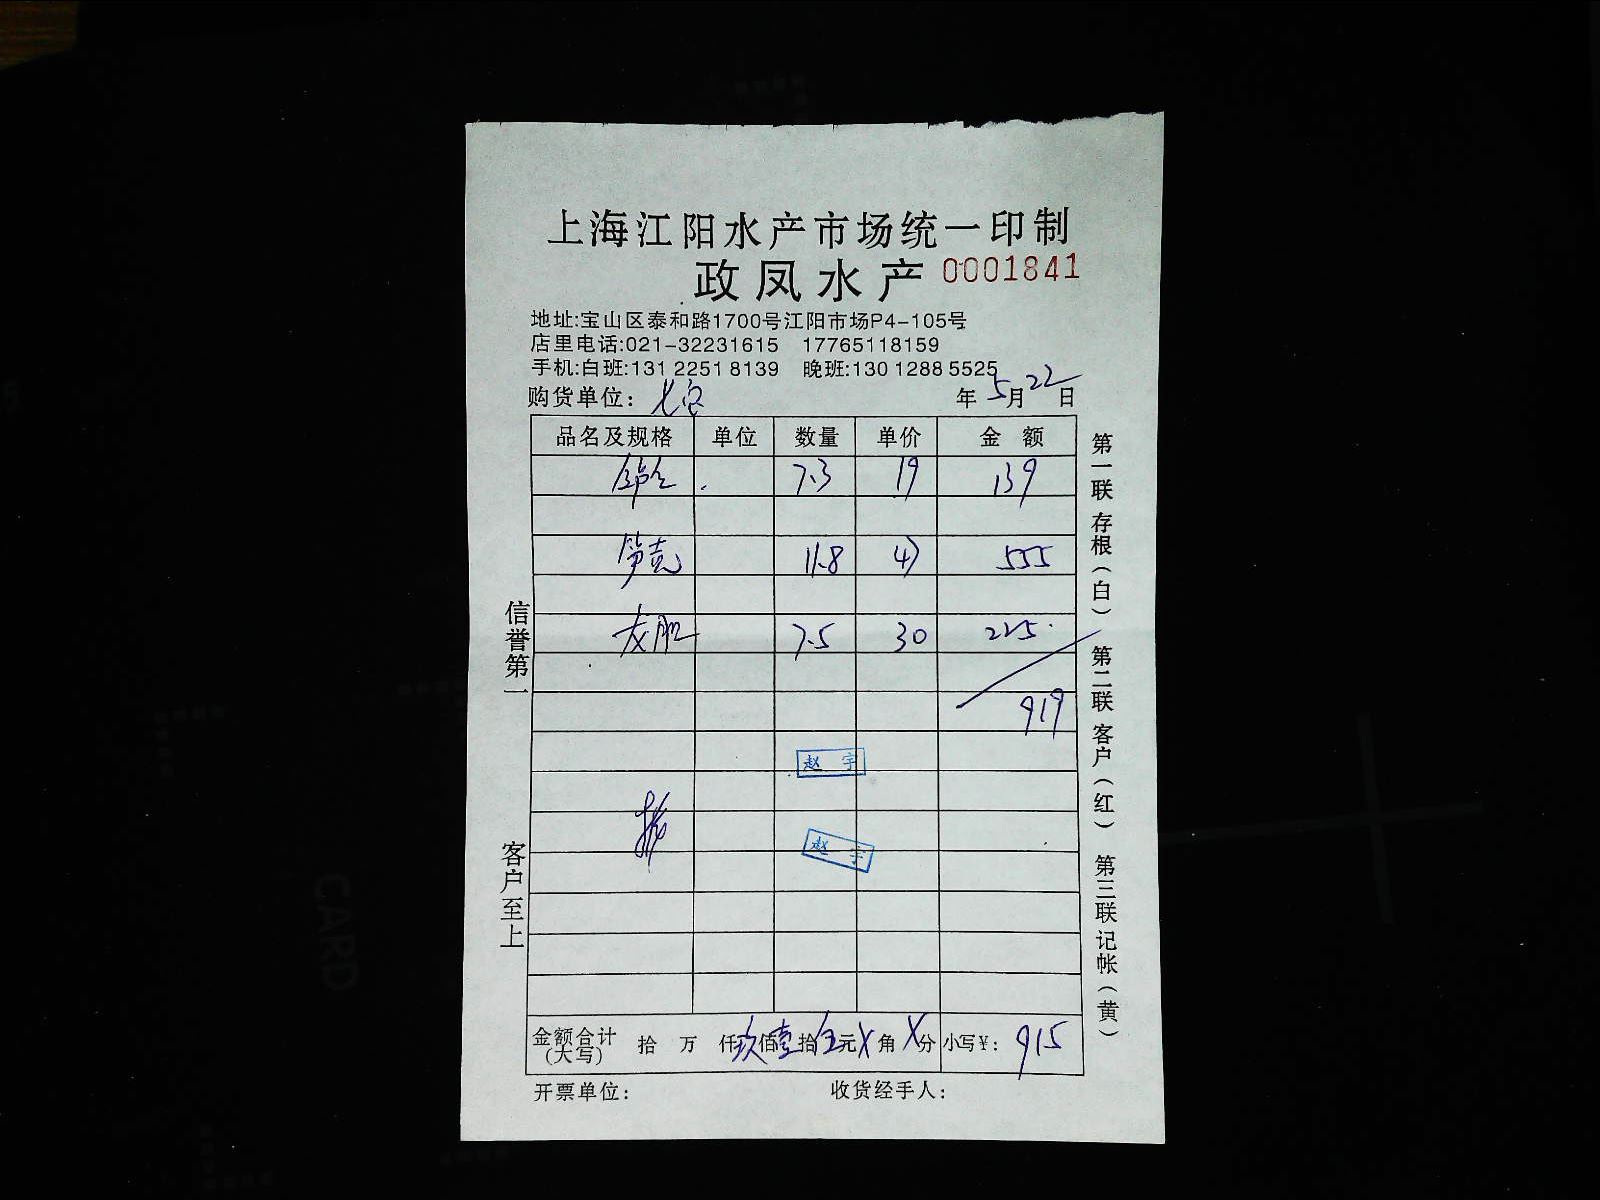 上海江阳水产市场统一印制
政凤水产 0001841
地址:宝山区泰和路1700号江阳市场P4-105号
店里电话:021-32231615 17765118159
手机:白班:131 2251 8139 晚班:130 1288 5525
购货单位: 年 5月22日
品名及规格 单位 数量 单价 金 额
7.3 19 139
笋壳 11.8 47 555
龙胆 7.5 30 225
919
赵 宇
赵 宇
金额合计(大写) 拾 万 仟玖佰壹拾伍元X角X分 小写¥: 915
开票单位: 收货经手人:
信誉第一
客户至上
第一联存根(白)
第二联客户(红)
第三联记帐(黄)
CARD